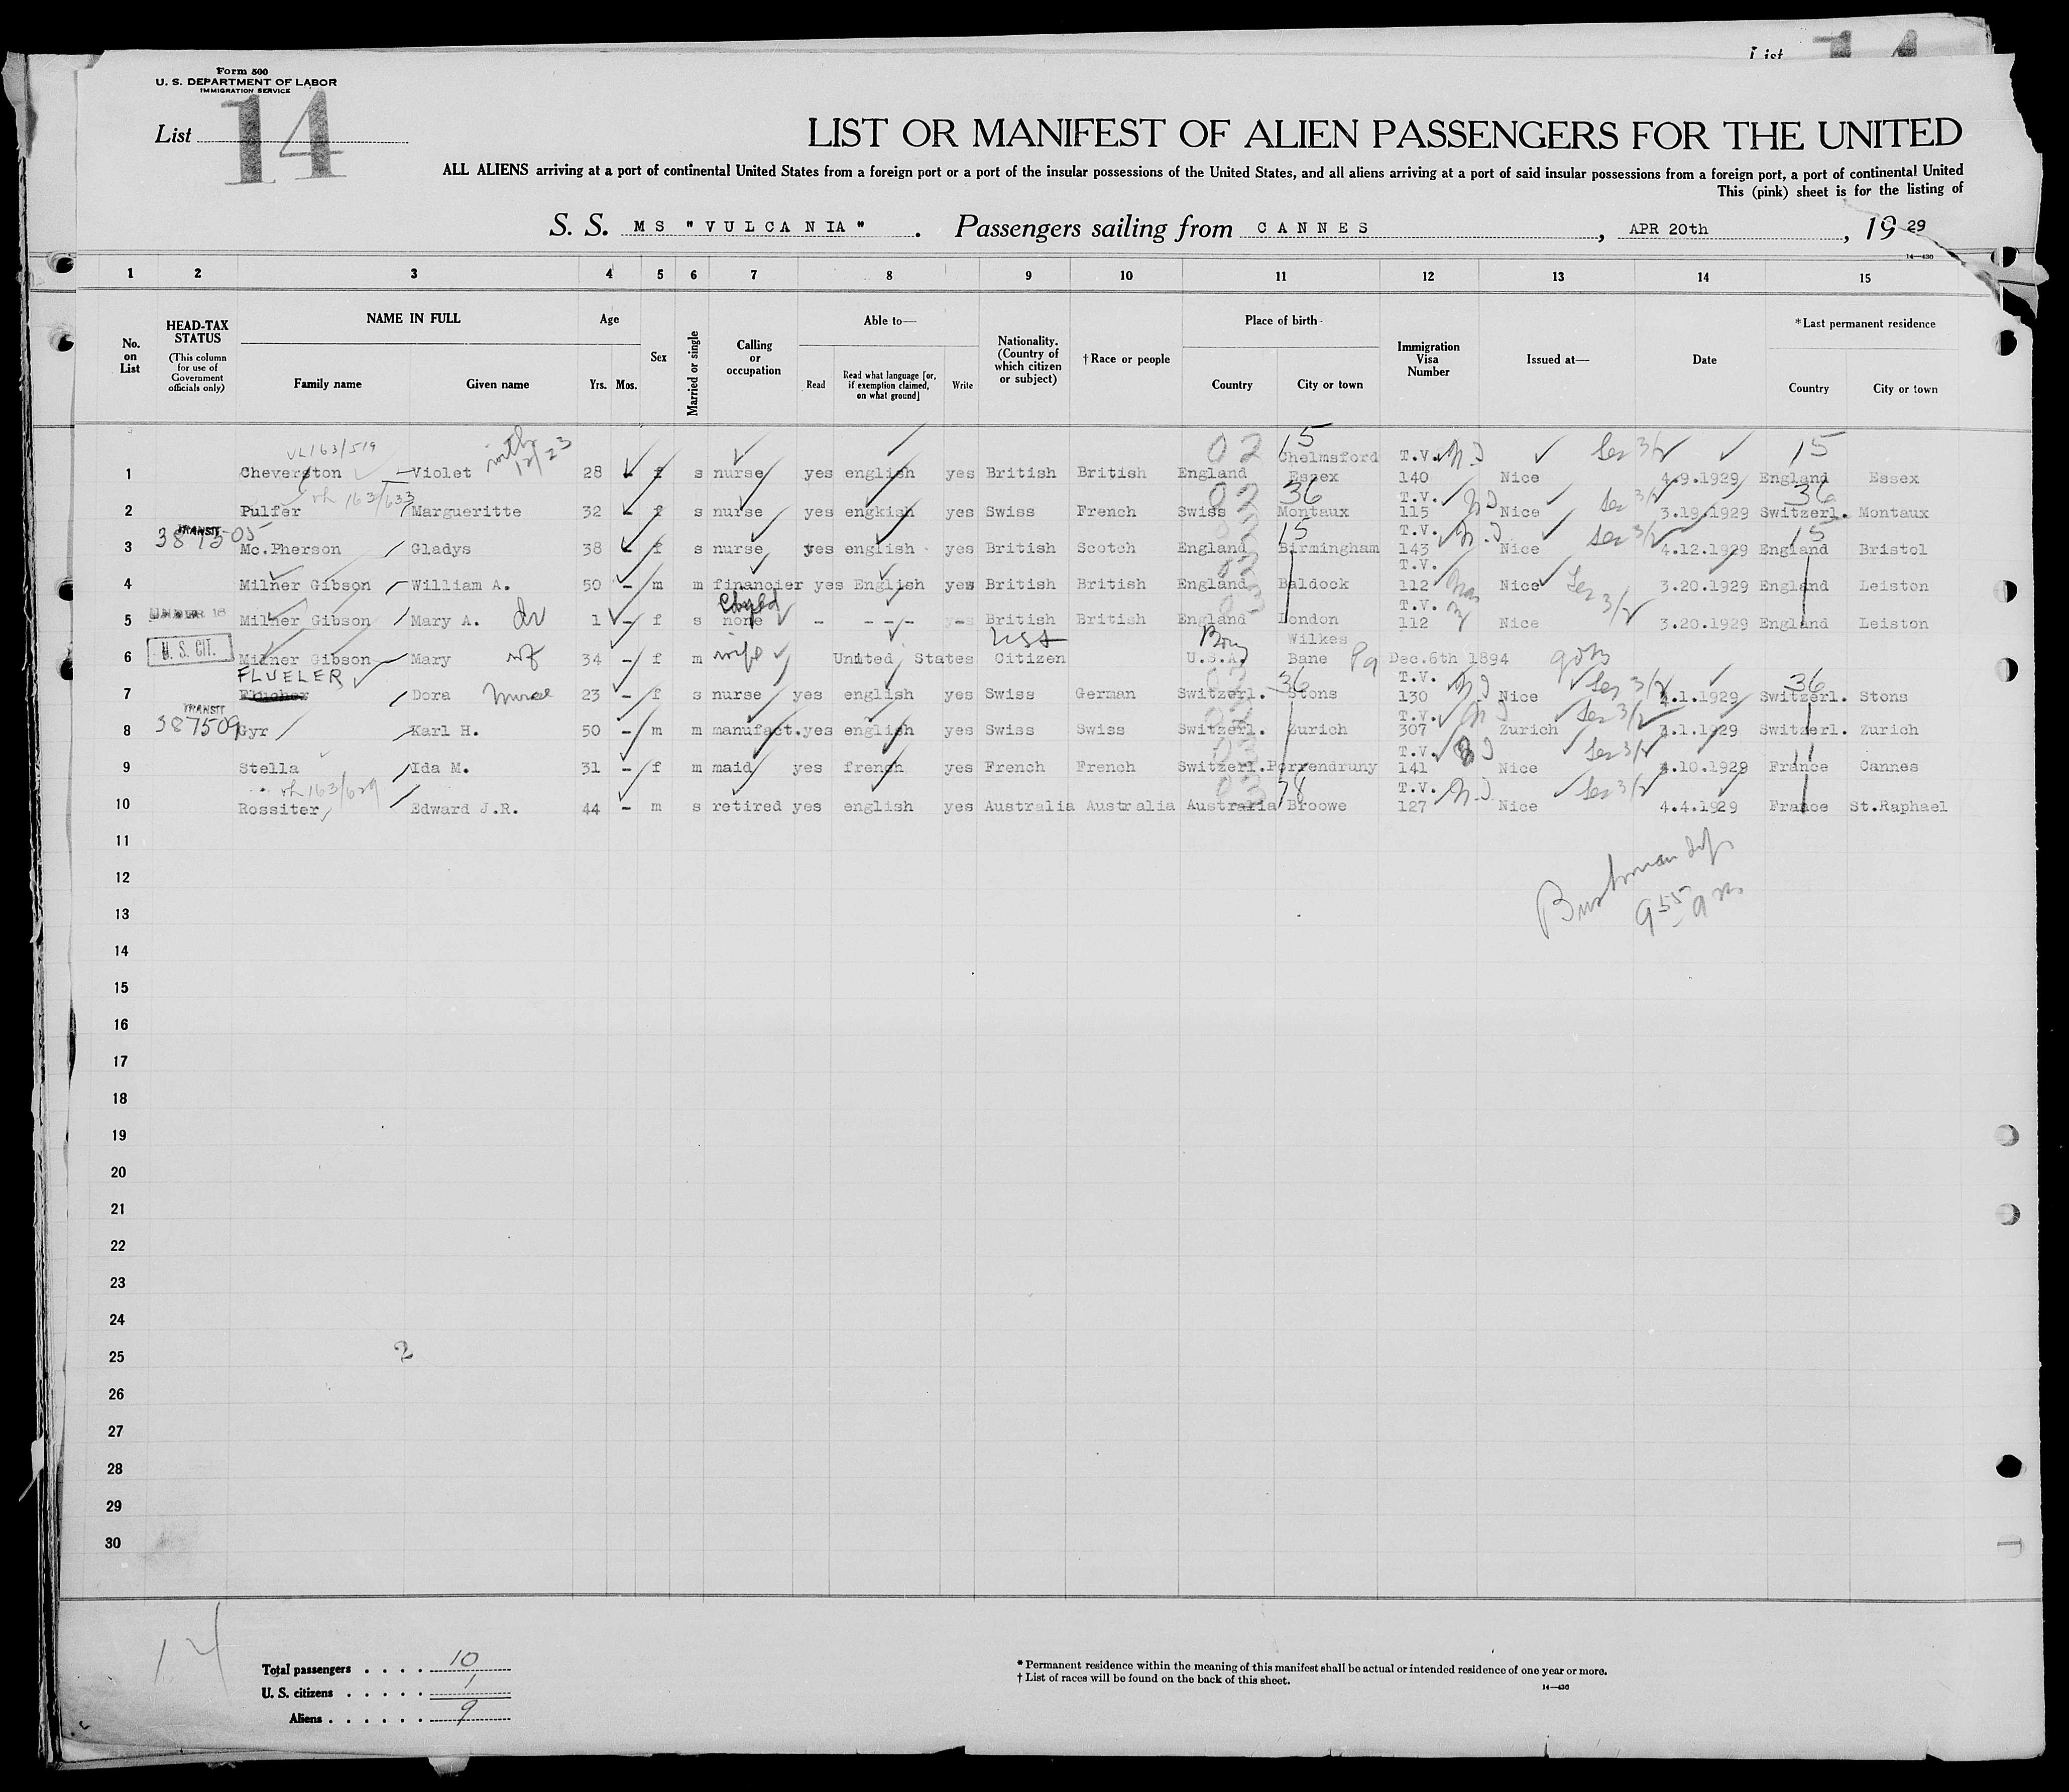 List 14
Form 500
U. S. DEPARTMENT OF LABOR
IMMIGRATION SERVICE
List 14
LIST OR MANIFEST OF ALIEN PASSENGERS FOR THE UNITED
ALL ALIENS arriving at a port of continental United States from a foreign port or a port of the insular possessions of the United States, and all aliens arriving at a port of said insular possessions from a foreign port, a port of continental United
This (pink) sheet is for the listing of
S. S. MS "VULCANIA". Passengers sailing from CANNES, APR 20th, 1929
14—430
1 2 3 4 5 6 7 8 9 10 11 12 13 14 15
No. on List
HEAD-TAX STATUS
(This column for use of Government officials only)
NAME IN FULL
Family name Given name
Age
Yrs. Mos.
Sex
Married or single
Calling or occupation
Able to—
Read
Read what language [or, if exemption claimed, on what ground]
Write
Nationality. (Country of which citizen or subject)
†Race or people
Place of birth
Country City or town
Immigration Visa Number
Issued at—
Date
*Last permanent residence
Country City or town
VL163/519 02 15 15
Chelmsford T.V.
1 Cheverston Violet 28 - f s nurse yes english yes British British England Essex 140 Nice 4.9.1929 England Essex
163/633 02 36 T.V. 36
2 Pulfer Margueritte 32 - f s nurse yes engkish yes Swiss French Swiss Montaux 115 Nice 3.19.1929 Switzerl. Montaux
TRANSIT 387505 15 T.V. 15
3 Mc.Pherson Gladys 38 - f s nurse yes english yes British Scotch England Birmingham 143 Nice 4.12.1929 England Bristol
T.V.
4 Milner Gibson William A. 50 - m m financier yes English yes British British England Baldock 112 Nice 3.20.1929 England Leiston
UNDER 16 T.V.
5 Milner Gibson Mary A. 1 - f s none - - -- British British England London 112 Nice 3.20.1929 England Leiston
U. S. CIT. Wilkes
6 Milner Gibson Mary wf 34 - f m wife United States Citizen U.S.A. Bane Pa Dec.6th 1894
FLUELER 36 T.V. 36
7 Dora nurse 23 - f s nurse yes english yes Swiss German Switzerl. Stons 130 Nice 4.1.1929 Switzerl. Stons
TRANSIT 387509 T.V.
8 Gyr Karl H. 50 - m m manufact. yes english yes Swiss Swiss Switzerl. Zurich 307 Zurich 3.1.1929 Switzerl. Zurich
T.V.
9 Stella Ida M. 31 - f m maid yes french yes French French Switzerl. Porrendruny 141 Nice 4.10.1929 France Cannes
163/629 78 T.V.
10 Rossiter Edward J.R. 44 - m s retired yes english yes Australia Australia Australia Broowe 127 Nice 4.4.1929 France St.Raphael
11
12
13
14
15
16
17
18
19
20
21
22
23
24
25 2
26
27
28
29
30
14
Total passengers . . . . 10
U. S. citizens . . . . . 1
Aliens . . . . . . 9
* Permanent residence within the meaning of this manifest shall be actual or intended residence of one year or more.
† List of races will be found on the back of this sheet.
14—430